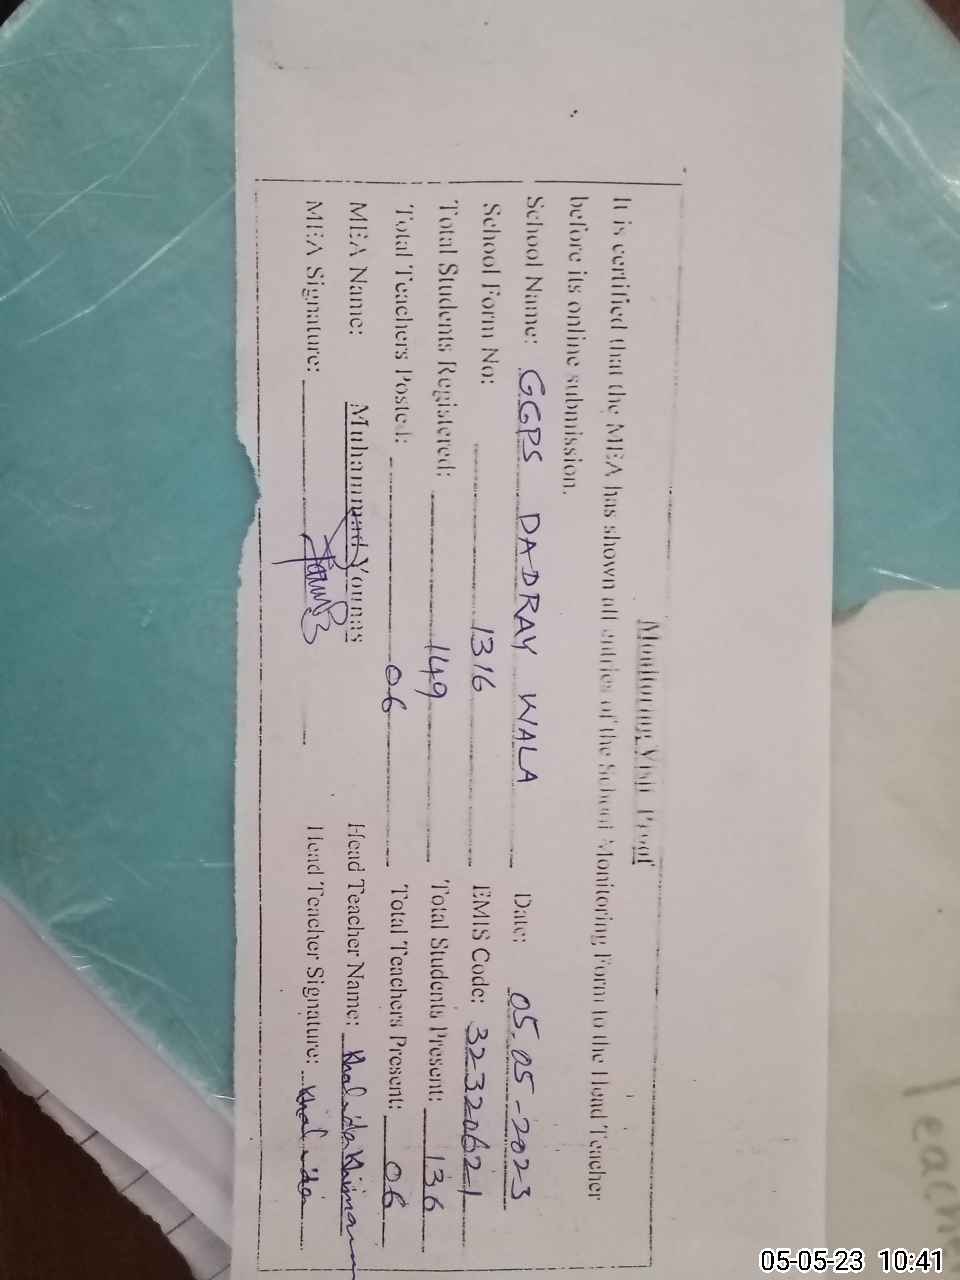 Monitoring Visit Proof
It is certified that the MEA has shown all entries of the School Monitoring Form to the Head Teacher
before its online submission.
School Name: GGPS DADRAY WALA Date: 05.05-2023
School Form No: 1316 EMIS Code: 32320621
Total Students Registered: 149 Total Students Present: 136
Total Teachers Posted: 06 Total Teachers Present: 06
MEA Name: Muhammad Younas Head Teacher Name: Khalida
MEA Signature: Head Teacher Signature: Khalida
Teache
05-05-23 10:41